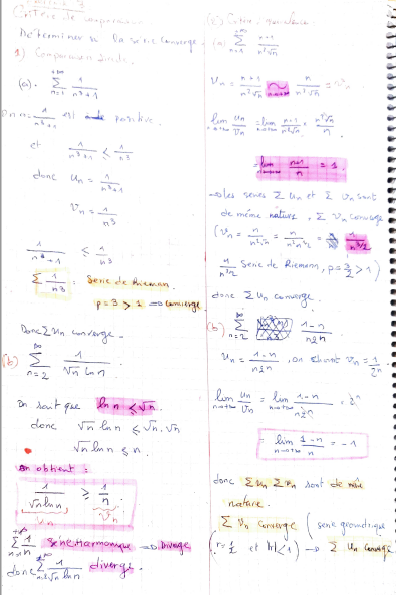 Critère de comparaison
Déterminer si la série converge.
1) Comparaison Simple.
(a). \sum_{n=1}^{+\infty} \frac{1}{n^3+1}
u_n = \frac{1}{n^3+1} est positive.
et \frac{1}{n^3+1} \leq \frac{1}{n^3}
donc u_n = \frac{1}{n^3+1}
v_n = \frac{1}{n^3}
\frac{1}{n^3+1} \leq \frac{1}{n^3}
\sum \frac{1}{n^3} : Serie de Riemann.
p = 3 > 1 ⇒ converge
Donc \sum u_n converge.
(b) \sum_{n=2}^{\infty} \frac{1}{\sqrt{n} \ln n}
On sait que \ln n \leq \sqrt{n}.
donc \sqrt{n} \ln n \leq \sqrt{n}.\sqrt{n}
\sqrt{n} \ln n \leq n.
on obtient :
\frac{1}{\sqrt{n} \ln n} \geq \frac{1}{n}.
u_n v_n
\sum_{n=1}^{+\infty} \frac{1}{n} serie harmonique ⇒ Diverge
donc \sum_{n=2}^{+\infty} \frac{1}{\sqrt{n} \ln n} diverge.
(a) \sum_{n=1}^{+\infty} \frac{n+1}{n^2\sqrt{n}}
u_n = \frac{n+1}{n^2\sqrt{n}} \sim \frac{n}{n^2\sqrt{n}} = v_n
\lim_{n→+\infty} \frac{u_n}{v_n} = \lim_{n→+\infty} \frac{n+1}{n^2\sqrt{n}} . \frac{n^2\sqrt{n}}{n}
= \lim_{n→+\infty} \frac{n+1}{n} = 1.
⇒ les series \sum u_n et \sum v_n sont
de même nature, \sum v_n converge
(v_n = \frac{n}{n^2\sqrt{n}} = \frac{n}{n^2 n^{1/2}} = \frac{1}{n^{3/2}}
\frac{1}{n^{3/2}} Serie de Riemann, p = \frac{3}{2} > 1)
donc \sum u_n converge.
(b) \sum_{n=2}^{\infty} \frac{1-n}{n2^n}
u_n = \frac{1-n}{n2^n}, on choisit v_n = \frac{1}{2^n}
\lim_{n→+\infty} \frac{u_n}{v_n} = \lim_{n→+\infty} \frac{1-n}{n2^n} . 2^n
= \lim_{n→+\infty} \frac{1-n}{n} = -1
donc \sum u_n \sum v_n sont de même
nature.
\sum v_n converge (serie geometrique
(r = \frac{1}{2} et |r| < 1) → \sum u_n converge